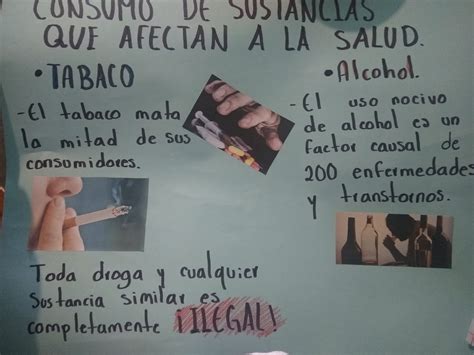 CONSUMO DE SUSTANCIAS
QUE AFECTAN A LA SALUD.
• TABACO
- El tabaco mata
la mitad de sus
consumidores.
• Alcohol.
- El uso nocivo
de alcohol es un
factor causal de
200 enfermedades
y transtornos.
Toda droga y cualquier
Sustancia similar es
completamente ¡ILEGAL!